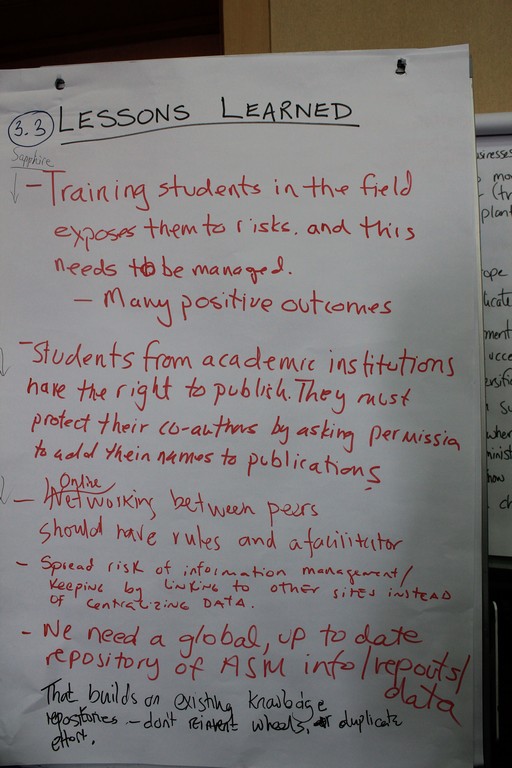 3.3 LESSONS LEARNED
Sapphire
- Training students in the field
exposes them to risks. and this
needs to be managed.
- Many positive outcomes
- Students from academic institutions
have the right to publish. They must
protect their co-authors by asking permissio
to add their names to publications
Online
- Networking between peers
should have rules and a facilitator
- Spread risk of information management/
keeping by linking to other sites instead
of centralizing DATA.
- We need a global, up to date
repository of ASM info/reports/
data
That builds on existing knowledge
repositories - don't reinvent wheels, or duplicate
effort.
usinesses
plant
ope
ucate
ment
when
minist
how